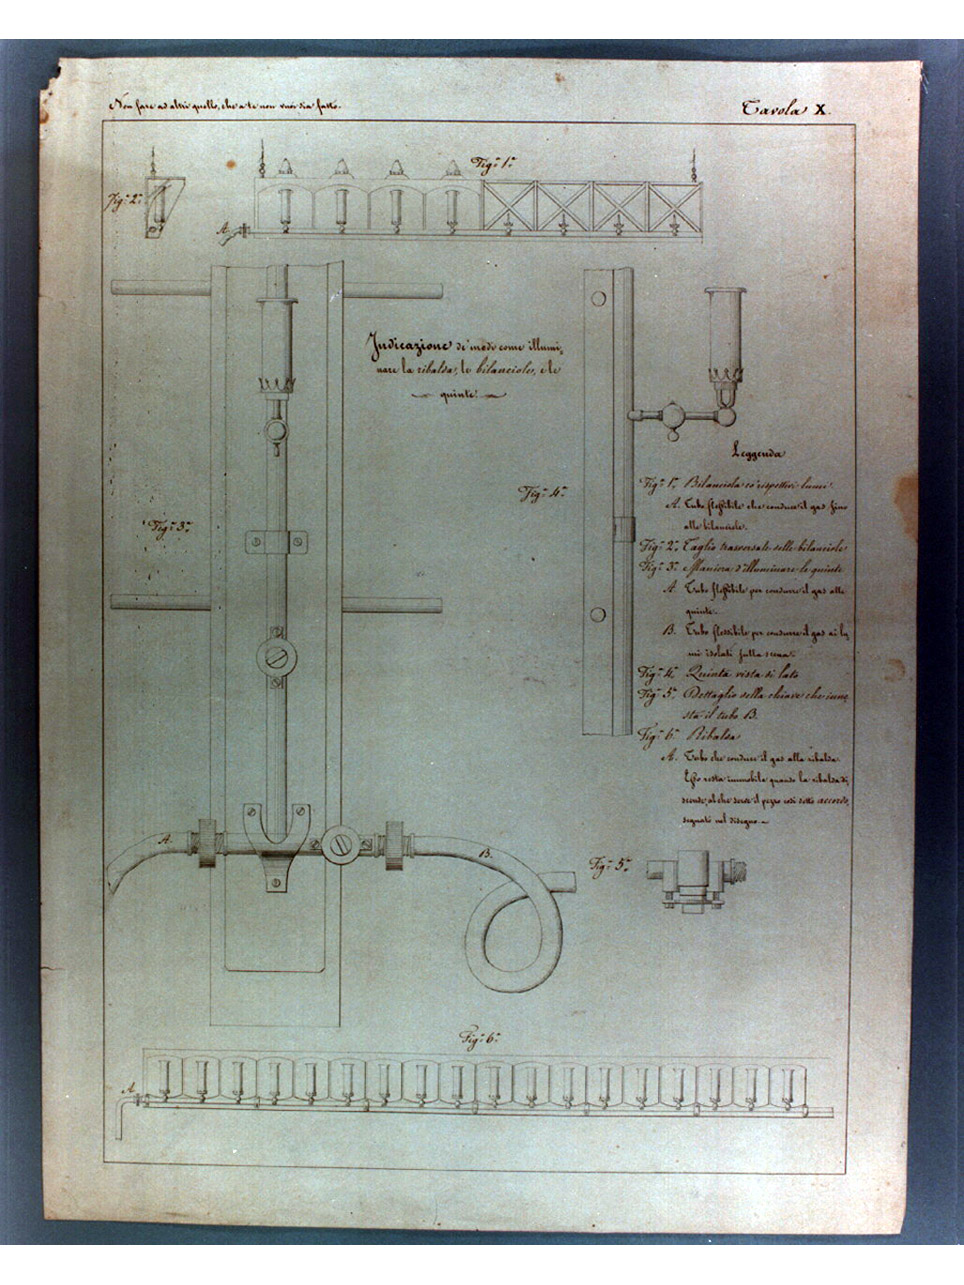 Non fare ad altri quello, che a te non vuoi sia fatto.
Tavola X.
Fig.ª 1.ª
Fig.ª 2.ª
A.
Indicazione de' modi come illumi,
nare la ribalda, le bilanciole, e le
quinte.
Leggenda
Fig.ª 1.ª Bilanciola co' rispettivi lumi.
A. Tubo flessibile che conduce il gas fino
alle bilanciole.
Fig.ª 2.ª Taglio trasversale delle bilanciole
Fig.ª 3.ª Maniera d'illuminare le quinte
A. Tubo flessibile per condurre il gas alle
quinte.
B. Tubo flessibile per condurre il gas ai lu,
mi isolati sulla scena.
Fig.ª 4.ª Quinta vista di lato
Fig.ª 5.ª Dettaglio della chiave che inne,
sta il tubo B.
Fig.ª 6.ª Ribalda
A. Tubo che conduce il gas alla ribalda.
Esso resta immobile quando la ribalda di,
scende, al che serve il pezzo così detto accordo,
segnato nel disegno.
Fig.ª 3.ª
Fig.ª 4.ª
A.
B.
Fig.ª 5.ª
Fig.ª 6.ª
A